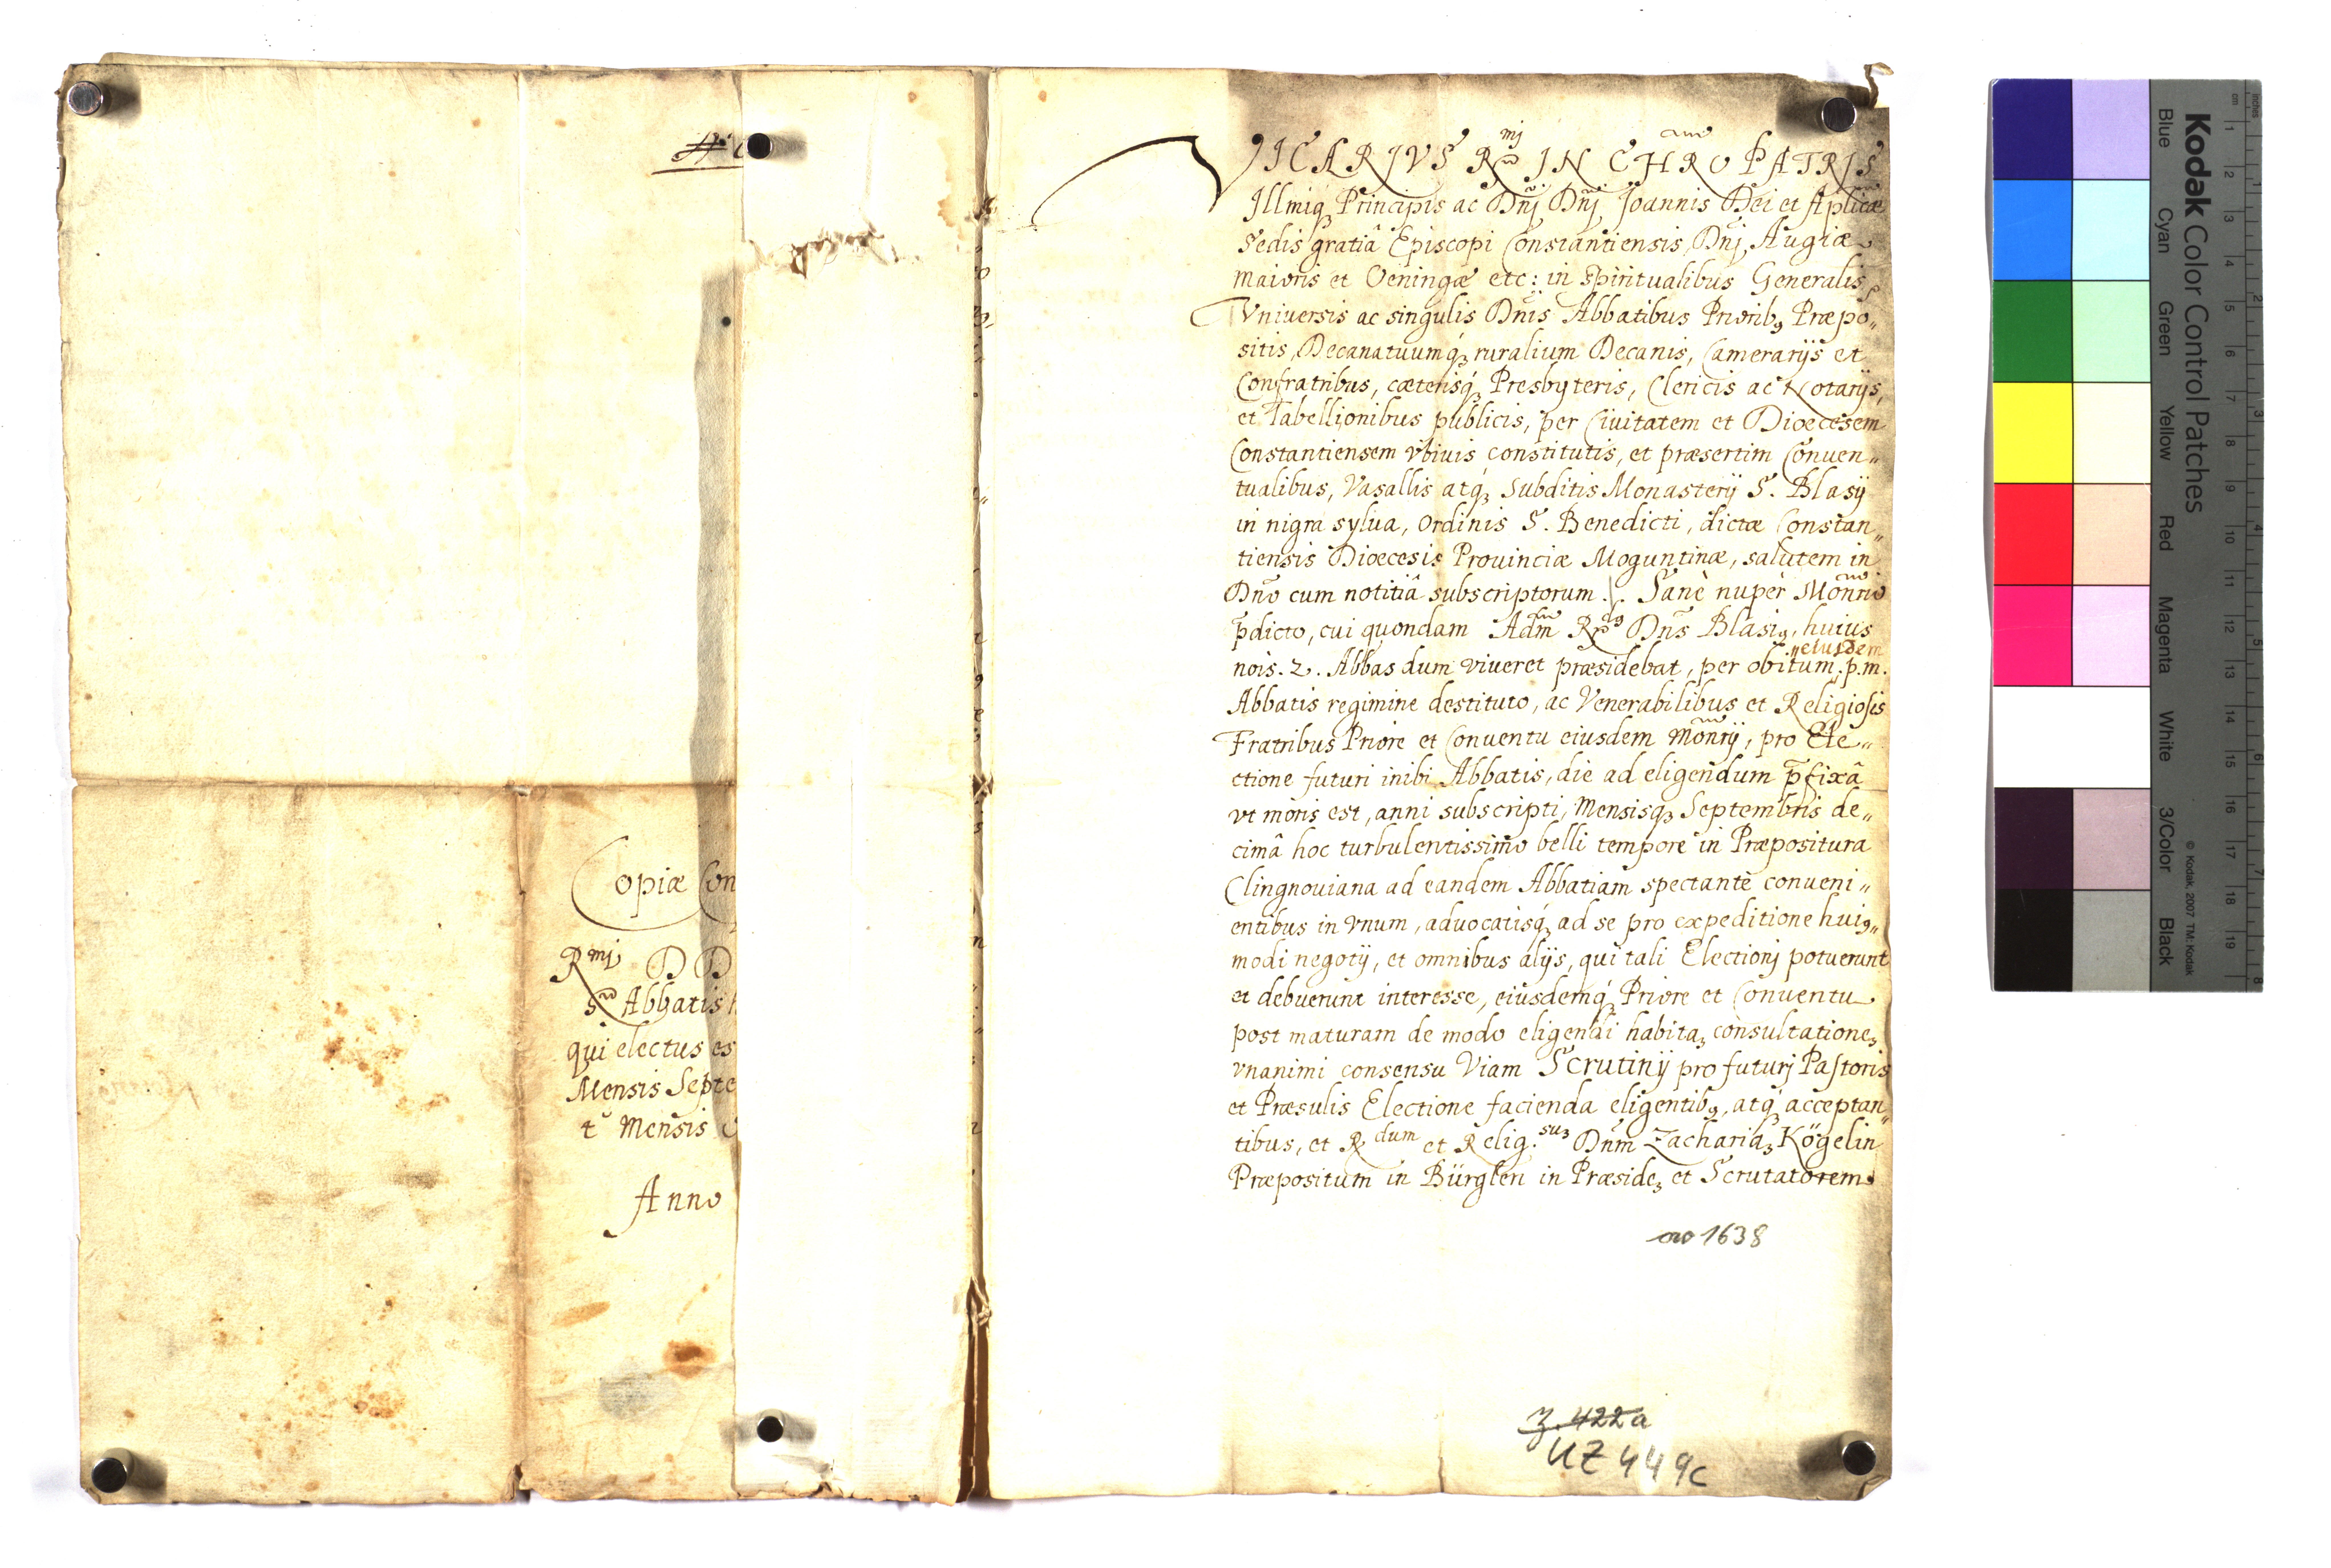 opiæ Con
Rmj D D
s Abbatis
qui electus es
Mensis Septe
t Mensis
Anno
VICARIVS Rmj IN CHRO PATRIS
Illmiq3 Principis ac Dnj Dnj Joannis Dei et Aplicæ
Sedis gratiâ Episcopi Constantiensis, Dnj Augiæ
maioris et Oeningæ etc: in Spiritualibus Generalis
Vniuersis ac singulis Dnis Abbatibus Priorib9 Præpo„
sitis, Decanatuumq3 ruralium Decanis, Camerarijs et
Confratribus, cæterisq3 Presbyteris, Clericis ac Notarijs,
et Tabellionibus publicis, per Ciuitatem et Dioecesem
Constantiensem vbiuis constitutis, et præsertim Conuen„
tualibus, Vasallis atq3 Subditis Monasterij S. Blasij
in nigra sylua, Ordinis S. Benedicti, dictæ Constan„
tiensis Dioecesis Prouinciæ Moguntinæ, salutem in
Dno cum notitiâ subscriptorum ./. Sanè nuper Monrio
p̄dicto, cui quondam Adm R Dns Blasi9, huius
nois. 2. Abbas dum viueret præsidebat, per obitum „eiusdem p. m.
Abbatis regimine destituto, ac Venerabilibus et Religiosis
Fratribus Priore et Conuentu eiusdem Monrij, pro Ele„
ctione futuri inibi Abbatis, die ad eligendum p̄fixâ
vt moris est, anni subscripti, Mensisq3 Septembris de„
cimâ hoc turbulentissimo belli tempore in Præpositura
Clingnouiana ad eandem Abbatiam spectante conueni„
entibus in vnum, aduocatisq3 ad se pro expeditione hui9„
modi negotij, et omnibus alijs, qui tali Electionj potuerunt
et debuerunt interesse, eiusdemq3 Priore et Conuentu
post maturam de modo eligendi habita3 consultatione3
vnanimi consensu Viam Scrutinij pro futurj Pastoris
et Præsulis Electione facienda eligentib9, atq3 acceptan„
tibus, et R dum et Relig. su3 Dnm Zacharia3 Kögelin
Præpositum in Bürglen in Præside3 et Scrutatorem
ao 1638
Z. 422a
UZ 449c
Kodak Color Control Patches
© Kodak, 2007 TM: Kodak
Blue
Cyan
Green
Yellow
Red
Magenta
White
3/Color
Black
inches
cm
1
2
3
4
5
6
7
8
9
10
11
12
13
14
15
16
17
18
19
1
2
3
4
5
6
7
8